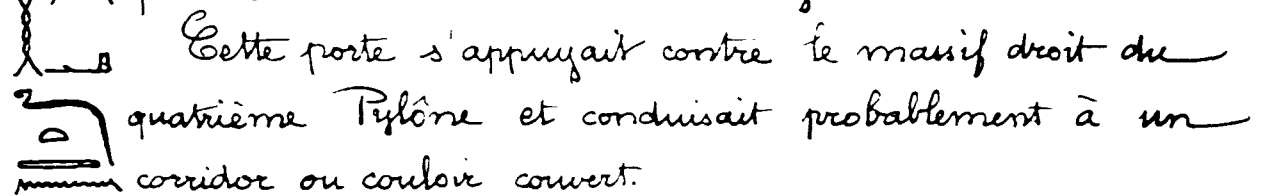 Cette porte s'appuyait contre le massif droit du
quatrième Pylône et conduisait probablement à un
corridor ou couloir couvert.